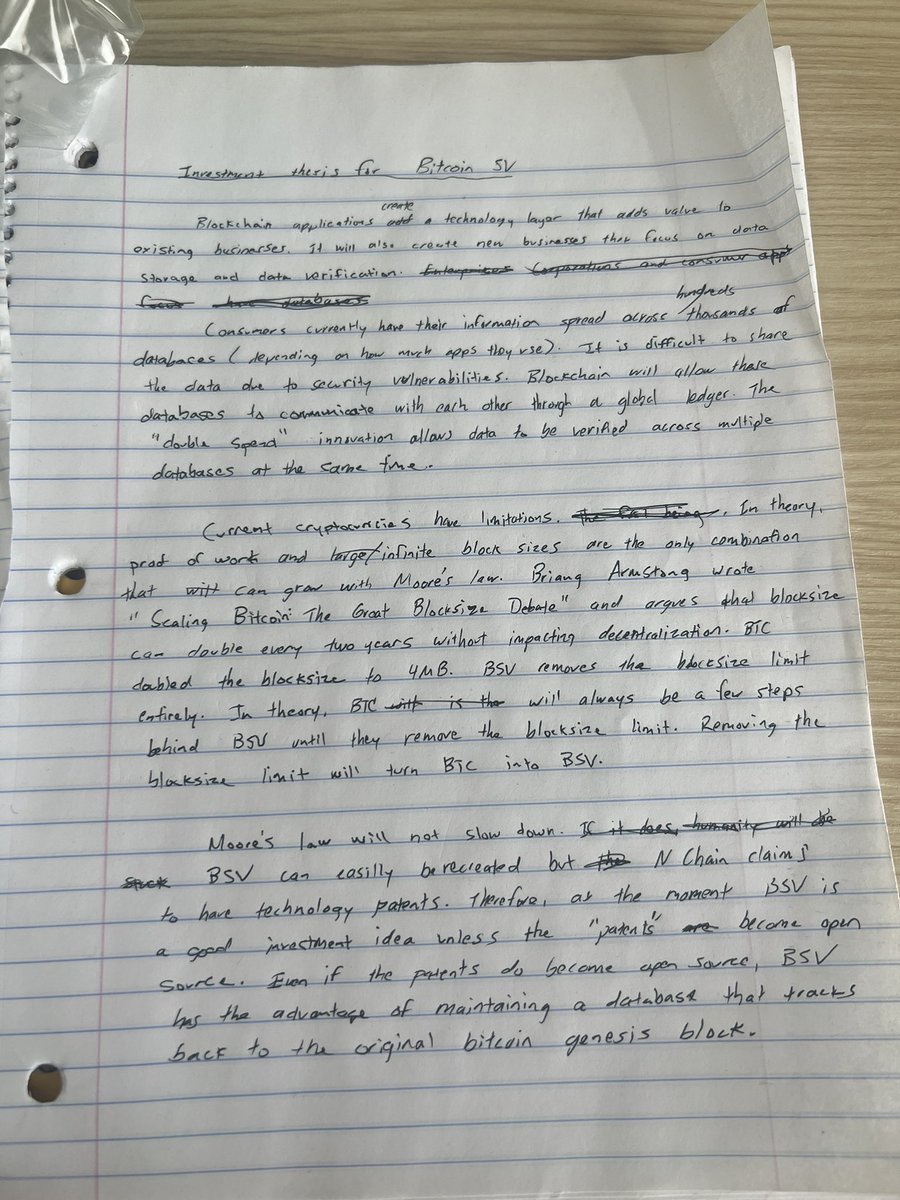 Investment thesis for Bitcoin SV
create
Blockchain applications add a technology layer that adds value to
existing businesses. It will also create new businesses that focus on data
storage and data verification. Enterprises Corporations and consumer apps
have databases
hundreds
Consumers currently have their information spread across thousands of
databaces (depending on how much apps they use). It is difficult to share
the data due to security vulnerabilities. Blockchain will allow these
databases to communicate with each other through a global ledger. The
"double spend" innovation allows data to be verified across multiple
databases at the same time.
Current cryptocurrcies have limitations. The being. In theory,
proof of work and large/infinite block sizes are the only combination
that will can grow with Moore's law. Briang Armstong wrote
"Scaling Bitcoin: The Great Blocksize Debate" and argues that blocksize
can double every two years without impacting decentralization. BTC
doubled the blocksize to 4MB. BSV removes the blocksize limit
entirely. In theory, BTC will is the will always be a few steps
behind BSV until they remove the blocksize limit. Removing the
blocksize limit will turn BTC into BSV.
Moore's law will not slow down. If it does, humanity will be
stuck BSV can easilly be recreated but the N Chain claims
to have technology patents. Therefore, at the moment BSV is
a good investment idea unless the "patents" are become open
source. Even if the patents do become open source, BSV
has the advantage of maintaining a database that tracks
back to the original bitcoin genesis block.